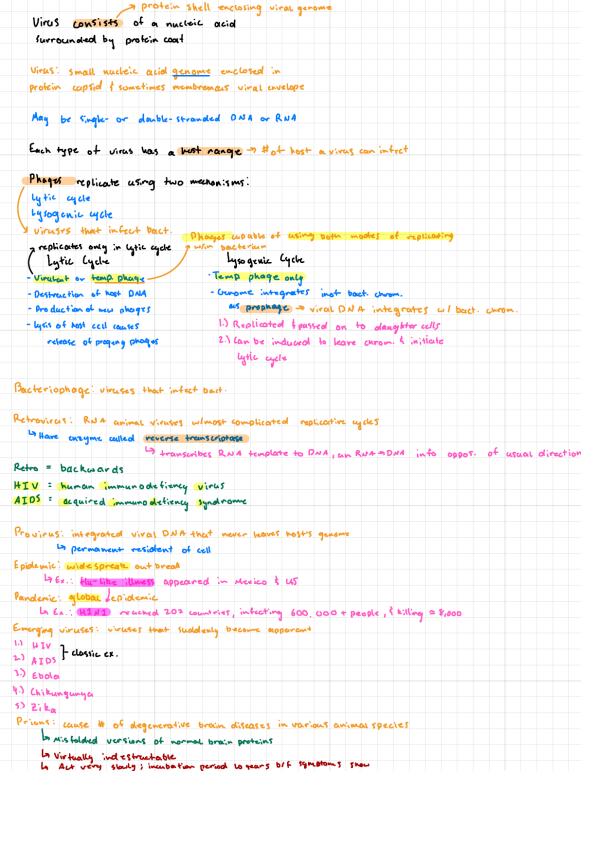 protein shell enclosing viral genome
Virus consists of a nucleic acid
surrounded by protein coat
Virus: small nucleic acid genome enclosed in
protein capsid & sometimes membranous viral envelope
May be single- or double-stranded DNA or RNA
Each type of virus has a host range → # of host a virus can infect
Phages replicate using two mechanisms:
Lytic cycle
Lysogenic cycle
viruses that infect bact.
Phages capable of using both modes of replicating
w/in bacterium
replicates only in lytic cycle
Lytic Cycle
- Virulent or temp phage
- Destruction of host DNA
- Production of new phages
- Lysis of host cell causes
release of progeny phages
Lysogenic Cycle
- Temp phage only
- Genome integrates into bact. chrom.
as prophage → viral DNA integrates w/ bact. chrom.
1.) Replicated & passed on to daughter cells
2.) Can be induced to leave chrom. & initiate
lytic cycle
Bacteriophage: viruses that infect bact.
Retrovirus: RNA animal viruses w/most complicated replicative cycles
↳ Have enzyme called reverse transcriptase
↳ transcribes RNA template to DNA, an RNA→DNA info oppos. of usual direction
Retro = backwards
HIV = human immunodefiency virus
AIDS = acquired immunodefiency syndrome
Provirus: integrated viral DNA that never leaves host's genome
↳ permanent resident of cell
Epidemic: widespreak outbreak
↳ Ex.: flu-like illness appeared in Mexico & US
Pandemic: global epidemic
↳ Ex.: H1N1 reached 207 countries, infecting 600,000+ people, & killing ≈ 8,000
Emerging viruses: viruses that suddenly become apparent
1.) HIV
2.) AIDS
classic ex.
3.) Ebola
4.) Chikungunya
5.) Zika
Prions: cause # of degenerative brain diseases in various animal species
↳ Misfolded versions of normal brain proteins
↳ Virtually indestructable
↳ Act very slowly; incubation period 10 years b/f symptoms show